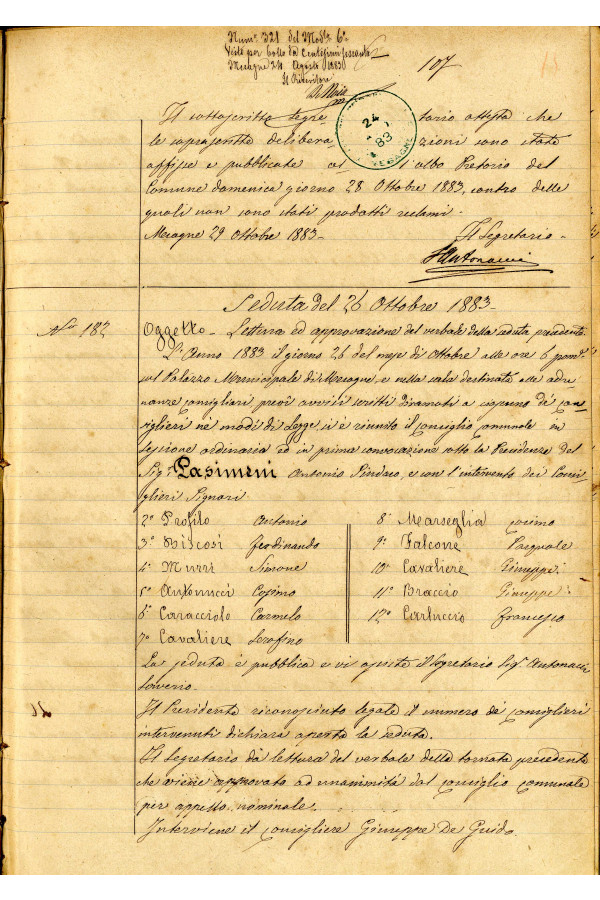 Num.° 321 del Mod.° 6°
Visto per bollo da Centesimi sessanta
Mesagne 24 Agosto 1883
Il Ricevitore
107
24
83
MESAGNE
Il sottoscritto Segretario attesta che
le soprascritte deliberazioni sono state
affisse e pubblicate all'albo Pretorio del
Comune domenica giorno 28 Ottobre 1883, contro delle
quali non sono stati prodotti reclami.
Mesagne 29 Ottobre 1883 –
Il Segretario –
SAntonucci
Seduta del 26 Ottobre 1883 –
N.° 182
Oggetto – Lettura ed approvazione del verbale della seduta precedente.
L'Anno 1883 il giorno 26 del mese di Ottobre alle ore 6 pom.
sul Palazzo Municipale di Mesagne, e nella sala destinata alle adu
nanze consigliari, previi avvisi scritti diramati a ciascuno dei con
siglieri nei modi di Legge, si è riunito il Consiglio comunale in
sessione ordinaria ed in prima convocazione sotto la Presidenza del
Sig.r Pasimeni Antonio Sindaco, e con l'intervento dei Consi
glieri Signori
2° Profilo Antonio
3° Biscosi Ferdinando
4° Murri Simone
5° Antonucci Cosimo
6° Caracciolo Carmelo
7° Cavaliere Serafino
8° Marseglia Cosimo
9° Falcone Pasquale
10° Cavaliere Giuseppe
11° Braccio Giuseppe
12° Carluccio Francesco
La seduta è pubblica e vi assiste il Segretario Sig. Antonucci
Saverio.
Il Presidente riconosciuto legale il numero dei consiglieri
intervenuti dichiara aperta la seduta.
Il Segretario dà lettura del verbale della tornata precedente
che viene approvato ad unanimità dal consiglio comunale
per appello nominale.
Interviene il consigliere Giuseppe De Guido.